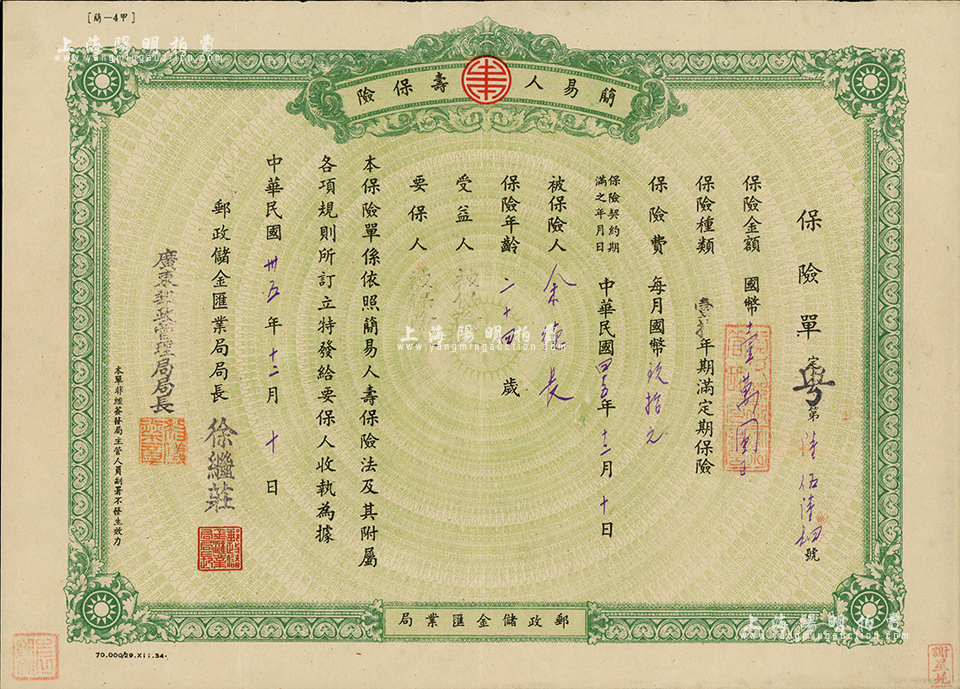 [簡一4甲]
上海陽明拍賣
www.yangmingauction.com
簡易人壽保險
保險單 定粵第陸伍陸捌號
保險金額 國幣壹萬圓正
保險種類 壹拾年期滿定期保險
保險費 每月國幣玖拾元
保險契約期滿之年月日 中華民國四十五年十二月十日
被保險人 余德長
保險年齡 二十四歲
受益人
要保人
本保險單係依照簡易人壽保險法及其附屬
各項規則所訂立特發給要保人收執為據
中華民國卅五年十二月十日
郵政儲金匯業局局長 徐繼莊
廣東郵政管理局局長
本單非經簽發局主管人員副署不發生效力
上海陽明拍賣
www.yangmingauction.com
郵政儲金匯業局
上海陽明拍賣
www.yangmingauction.com
70,000/29.Xii.34.